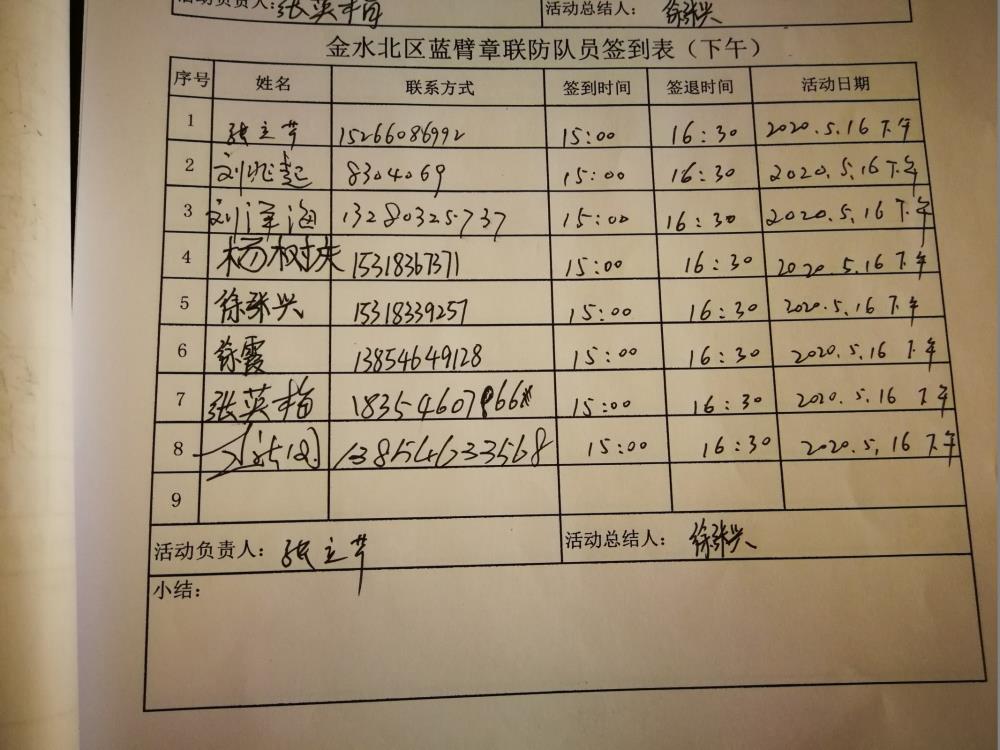 活动负责人：张英梅 活动总结人： 徐张兴
金水北区蓝臂章联防队员签到表（下午）
序号 姓名 联系方式 签到时间 签退时间 活动日期
1 张立芹 15266086992 15:00 16:30 2020.5.16下午
2 刘兆起 8304069 15:00 16:30 2020.5.16下午
3 刘泽海 13280325737 15:00 16:30 2020.5.16下午
4 杨树庆 15318367371 15:00 16:30 2020.5.16下午
5 徐张兴 15318339257 15:00 16:30 2020.5.16下午
6 徐霞 13854649128 15:00 16:30 2020.5.16 下午
7 张英梅 15:00 16:30 2020.5.16 下午
8 15:00 16:30 2020.5.16 下午
9
活动负责人： 张立芹 活动总结人： 徐张兴
小结：